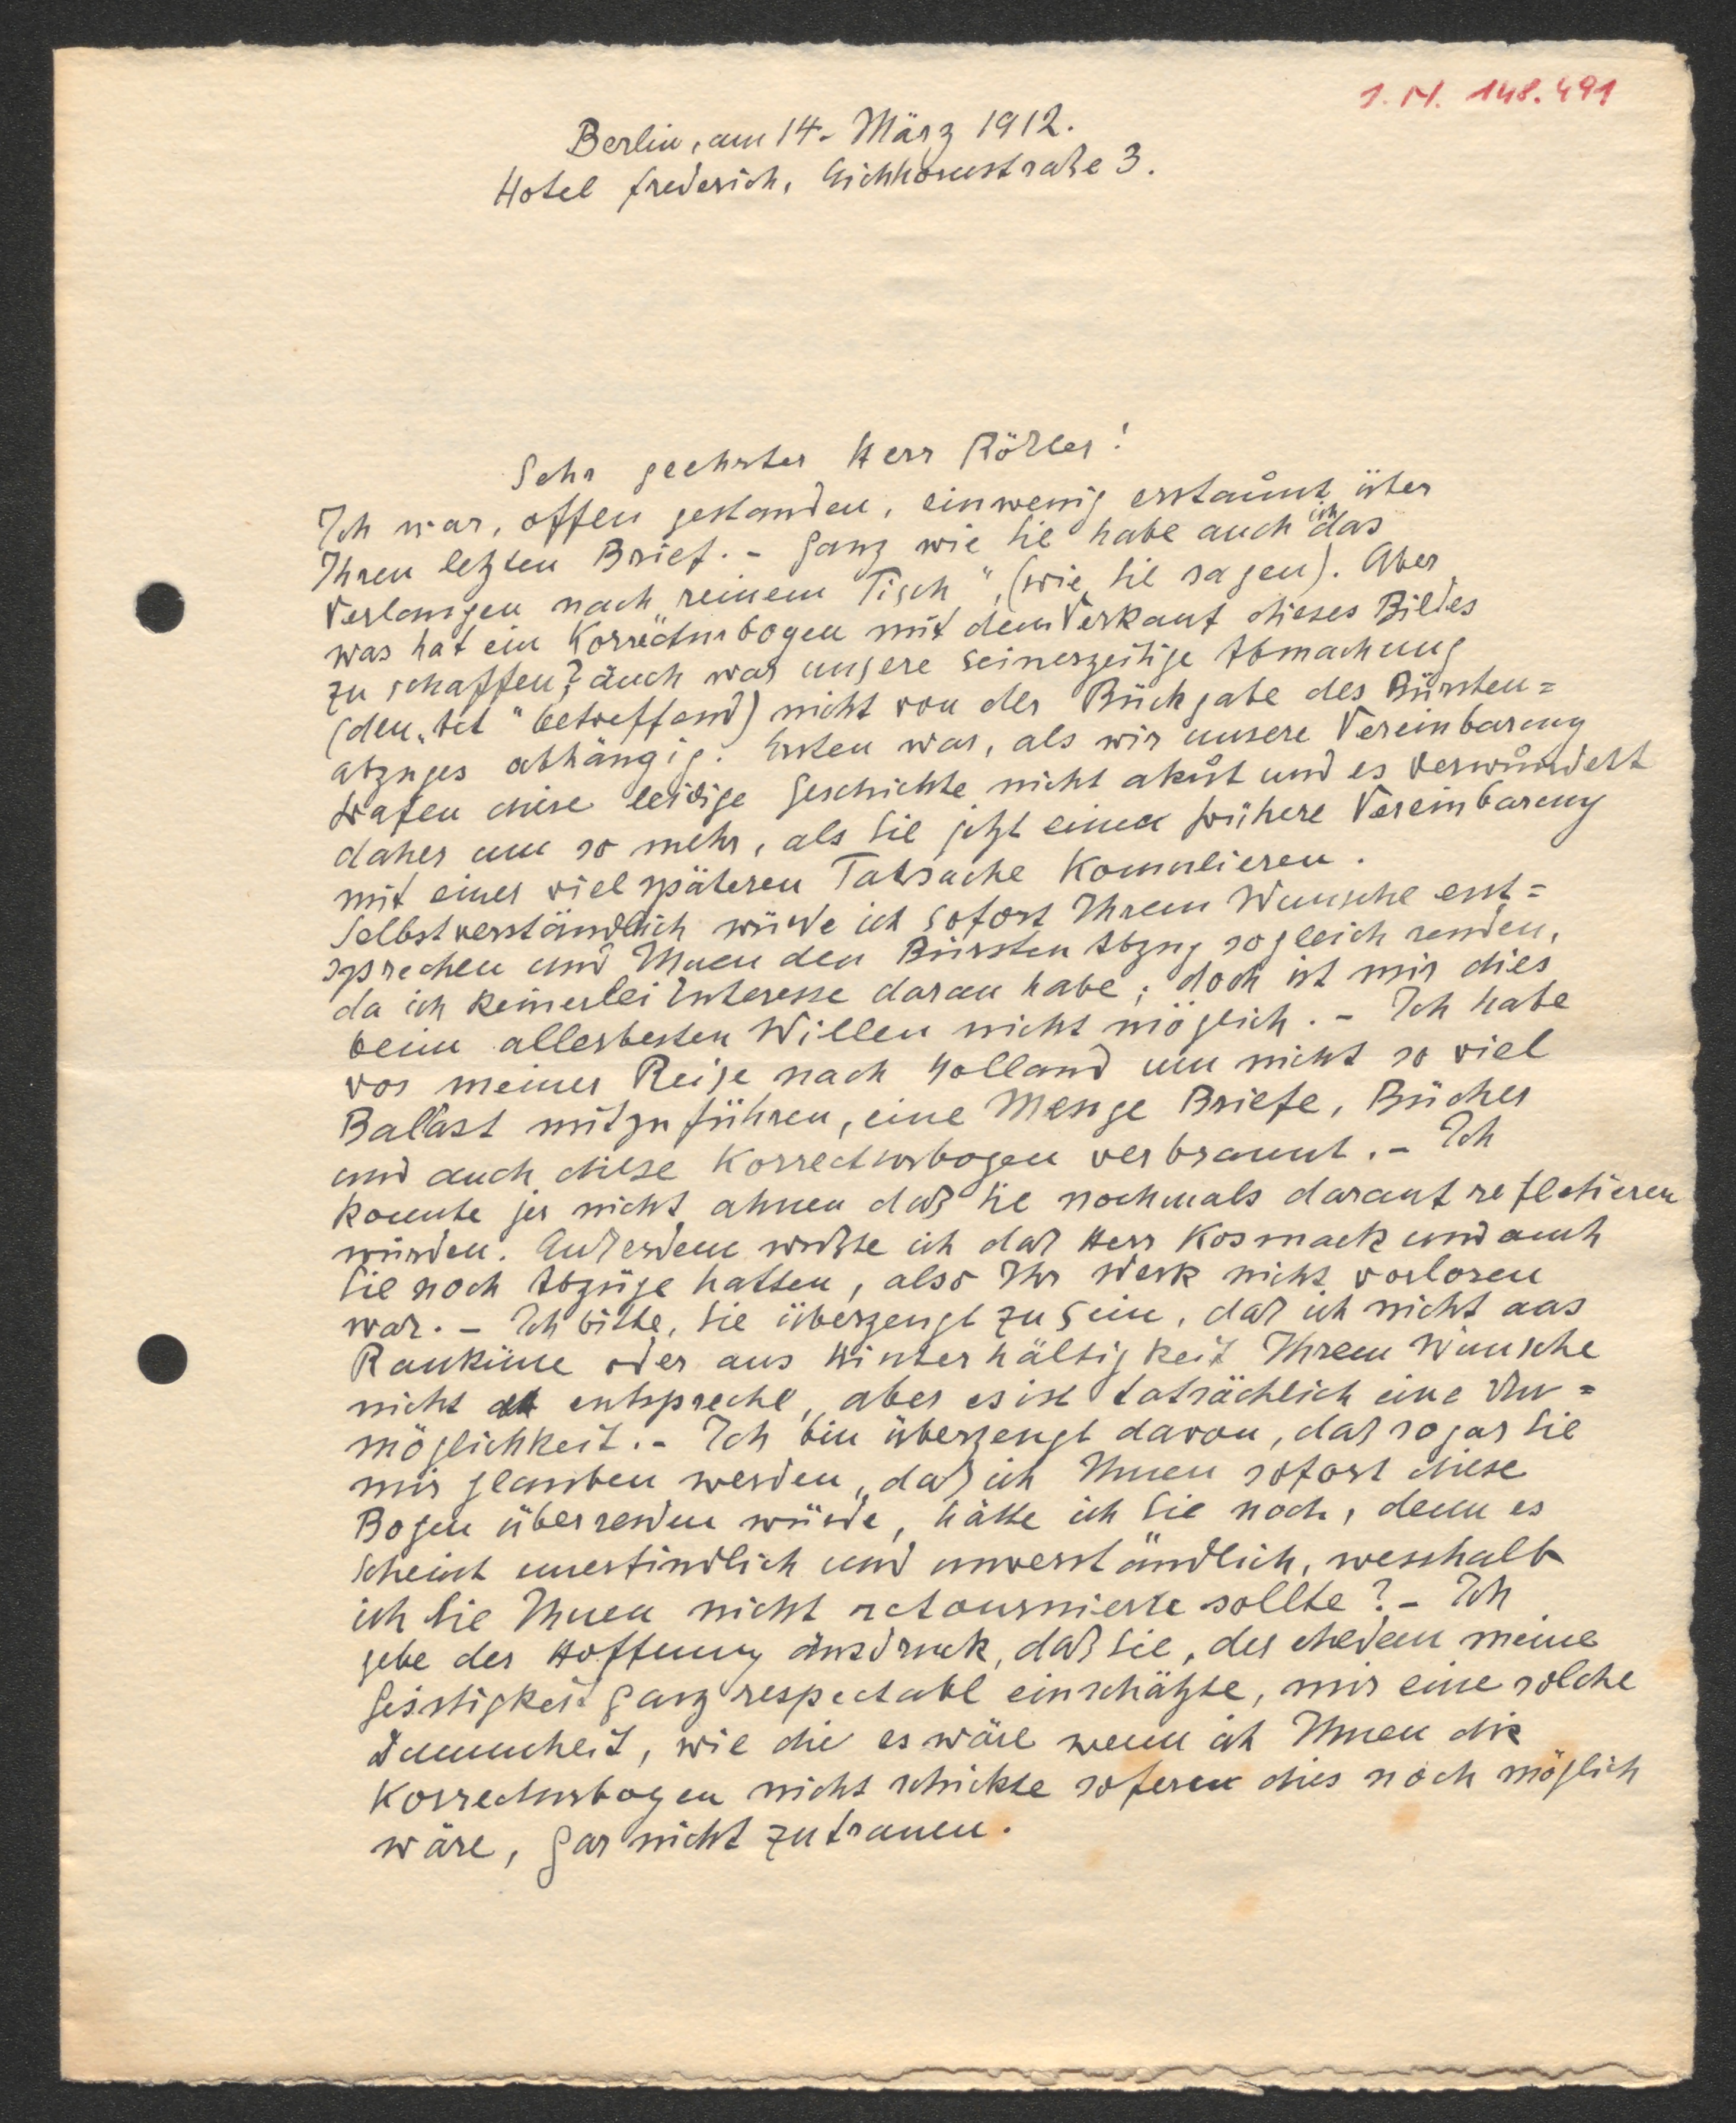 I. N. 148.491
Berlin, am 14. März 1912.
Hotel Frederich, Eichhornstraße 3.
Sehr geehrter Herr Rößler!
Ich war, offen gestanden, einwenig erstaunt über
Ihren letzten Brief. – Ganz wie Sie habe auch ich das
Verlangen nach „reinem Tisch", (wie Sie sagen). Aber
was hat ein Korrecturbogen mit dem Verkauf dieses Bildes
zu schaffen? auch war unsere seinerzeitige Abmachung
(den „Akt" betreffend) nicht von der Rückgabe des Bürsten=
abzuges abhängig. Ersten war, als wir unsere Vereinbarung
trafen diese leidige Geschichte nicht akut und es verwundert
daher um so mehr, als Sie jetzt eine frühere Vereinbarung
mit einer viel späteren Tatsache Komulieren.
Selbstverständlich würde ich sofort Ihrem Wunsche ent=
sprechen und Ihnen den Bürsten Abzug sogleich senden,
da ich keinerlei Interesse daran habe; doch ist mir dies
beim allerbesten Willen nicht möglich. – Ich habe
vor meiner Reise nach Holland um nicht so viel
Ballast mitzuführen, eine Menge Briefe, Bücher
und auch diese Korrecturbogen verbrannt. – Ich
konnte ja nicht ahnen daß Sie nochmals darauf reflectieren
würden. Außerdem wußte ich daß Herr Kosmack und auch
Sie noch Abzüge hatten, also Ihr Werk nicht verloren
war. – Ich bitte, Sie überzeugt zu sein, daß ich nicht aus
Ranküne oder aus Hinterhältigkeit Ihrem Wunsche
nicht entspreche, aber es ist tatsächlich eine Un=
möglichkeit. – Ich bin überzeugt davon, daß sogar Sie
mir glauben werden, daß ich Ihnen sofort diese
Bogen übersenden würde, hätte ich Sie noch, denn es
scheint unerfindlich und unverständlich, wesshalb
ich Sie Ihnen nicht retournierte sollte? – Ich
gebe der Hoffnung Ausdruck, daß Sie, der ehedem meine
Geistigkeit ganz respectabl einschätzte, mir eine solche
Dummheit, wie die es wäre wenn ich Ihnen die
Korrecturbogen nicht schickte soferne dies noch möglich
wäre, gar nicht zutrauen.